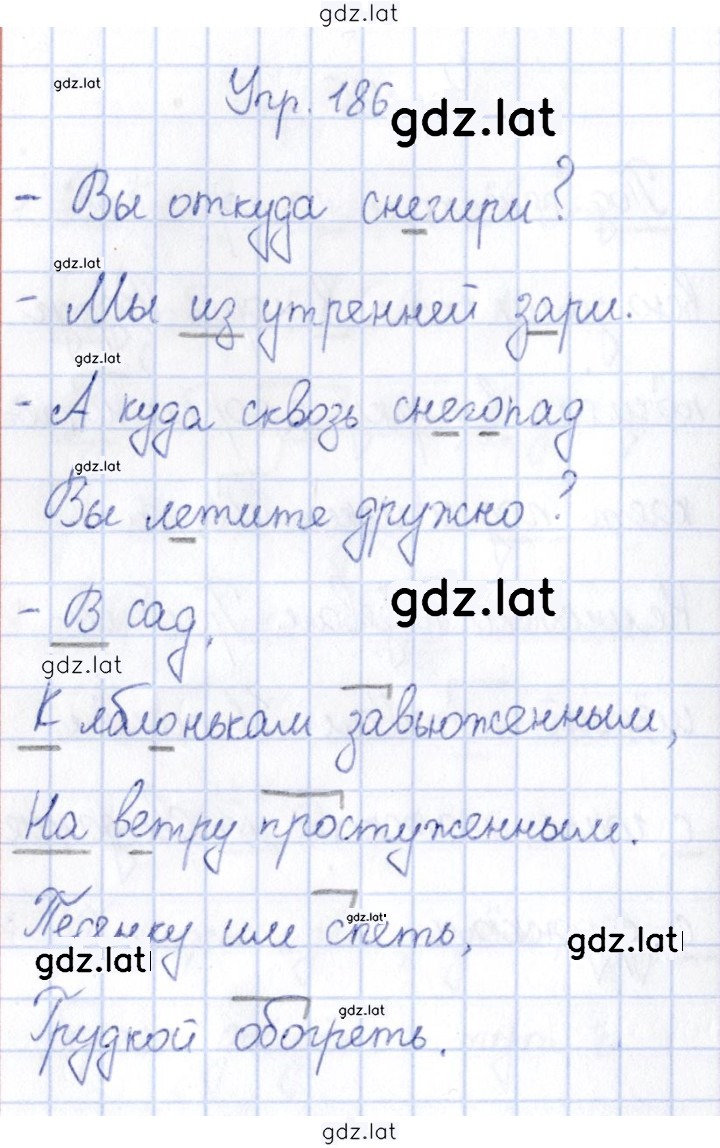 gdz.lat
gdz.lat
Упр. 186
gdz.lat
- Вы откуда снегири?
gdz.lat
- Мы из утренней зари.
gdz.lat
- А куда сквозь снегопад
gdz.lat
Вы летите дружно?
gdz.lat
- В сад,
gdz.lat
К яблонькам завьюженным,
На ветру простуженным.
Песенку им спеть,
gdz.lat
gdz.lat
gdz.lat
Грудкой обогреть.
gdz.lat
gdz.lat